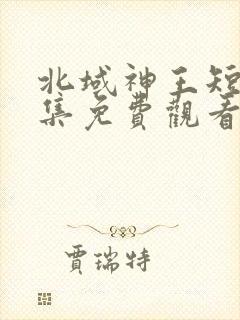 北域神王短
集免費觀看
賈瑞特